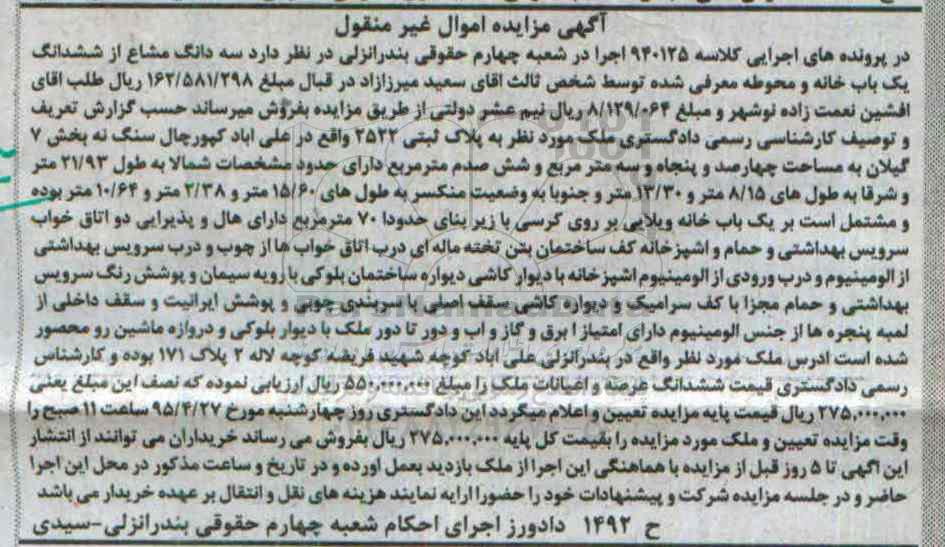 آگهی مزایده اموال غیر منقول
در پرونده های اجرایی کلاسه ۹۴۰۱۲۵ اجرا در شعبه چهارم حقوقی بندرانزلی در نظر دارد سه دانگ مشاع از ششدانگ
یک باب خانه و محوطه معرفی شده توسط شخص ثالث اقای سعید میرزازاد در قبال مبلغ ۱۶۲/۵۸۱/۲۹۸ ریال طلب اقای
افشین نعمت زاده نوشهر و مبلغ ۸/۱۲۹/۰۶۴ ریال نیم عشر دولتی از طریق مزایده بفروش میرساند حسب گزارش تعریف
و توصیف کارشناسی رسمی دادگستری ملک مورد نظر به پلاک ثبتی ۲۵۲۲ واقع در علی اباد کپورچال سنگ نه بخش ۷
گیلان به مساحت چهارصد و پنجاه و سه متر مربع و شش صدم مترمربع دارای حدود مشخصات شمالا به طول ۲۱/۹۳ متر
و شرقا به طول های ۸/۱۵ متر و ۱۳/۳۰ متر و جنوبا به وضعیت منکسر به طول های ۱۵/۶۰ متر و ۲/۳۸ متر و ۱۰/۶۴ متر بوده
و مشتمل است بر یک باب خانه ویلایی بر روی کرسی با زیر بنای حدودا ۷۰ مترمربع دارای هال و پذیرایی دو اتاق خواب
سرویس بهداشتی و حمام و اشپزخانه کف ساختمان بتن تخته ماله ای درب اتاق خواب ها از چوب و درب سرویس بهداشتی
از الومینیوم و درب ورودی از الومینیوم اشپزخانه با دیوار کاشی دیواره ساختمان بلوکی با رویه سیمان و پوشش رنگ سرویس
بهداشتی و حمام مجزا با کف سرامیک و دیواره کاشی سقف اصلی با سربندی چوبی و پوشش ایرانیت و سقف داخلی از
لمبه پنجره ها از جنس الومینیوم دارای امتیاز ا برق و گاز و اب و دور تا دور ملک با دیوار بلوکی و دروازه ماشین رو محصور
شده است ادرس ملک مورد نظر واقع در بندرانزلی علی اباد کوچه شهید فریضه کوچه لاله ۲ پلاک ۱۷۱ بوده و کارشناس
رسمی دادگستری قیمت ششدانگ عرصه و اعیانات ملک را مبلغ ۵۵۰,۰۰۰,۰۰۰ ریال ارزیابی نموده که نصف این مبلغ یعنی
۲۷۵,۰۰۰,۰۰۰ ریال قیمت پایه مزایده تعیین و اعلام میگردد این دادگستری روز چهارشنبه مورخ ۹۵/۴/۲۷ ساعت ۱۱ صبح را
وقت مزایده تعیین و ملک مورد مزایده را بقیمت کل پایه ۲۷۵,۰۰۰,۰۰۰ ریال بفروش می رساند خریداران می توانند از انتشار
این اگهی تا ۵ روز قبل از مزایده با هماهنگی این اجرا از ملک بازدید بعمل اورده و در تاریخ و ساعت مذکور در محل این اجرا
حاضر و در جلسه مزایده شرکت و پیشنهادات خود را حضورا ارایه نمایند هزینه های نقل و انتقال بر عهده خریدار می باشد
ح ۱۴۹۲ دادورز اجرای احکام شعبه چهارم حقوقی بندرانزلی-سیدی